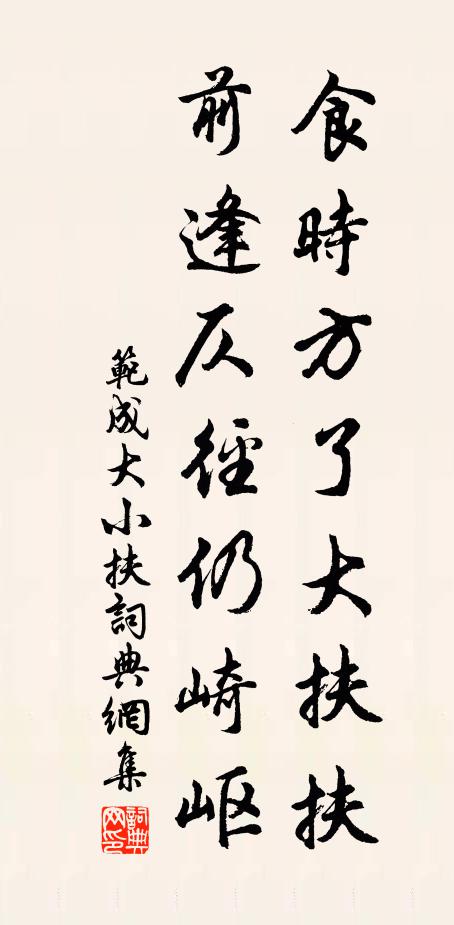 食時方了大扶扶
前逢仄徑仍崎岖
範成大小扶詞典網集
詞典網印